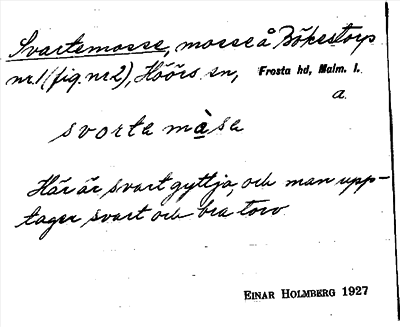 Svartemosse, mosse å Bökestorps
nr. 1 (fig. nr 2), Höörs sn, Frosta hd, Malm. l.
a.
svorta måsa
Här är svart gyttja, och man upp-
tager svart och bra torv
EINAR HOLMBERG 1927